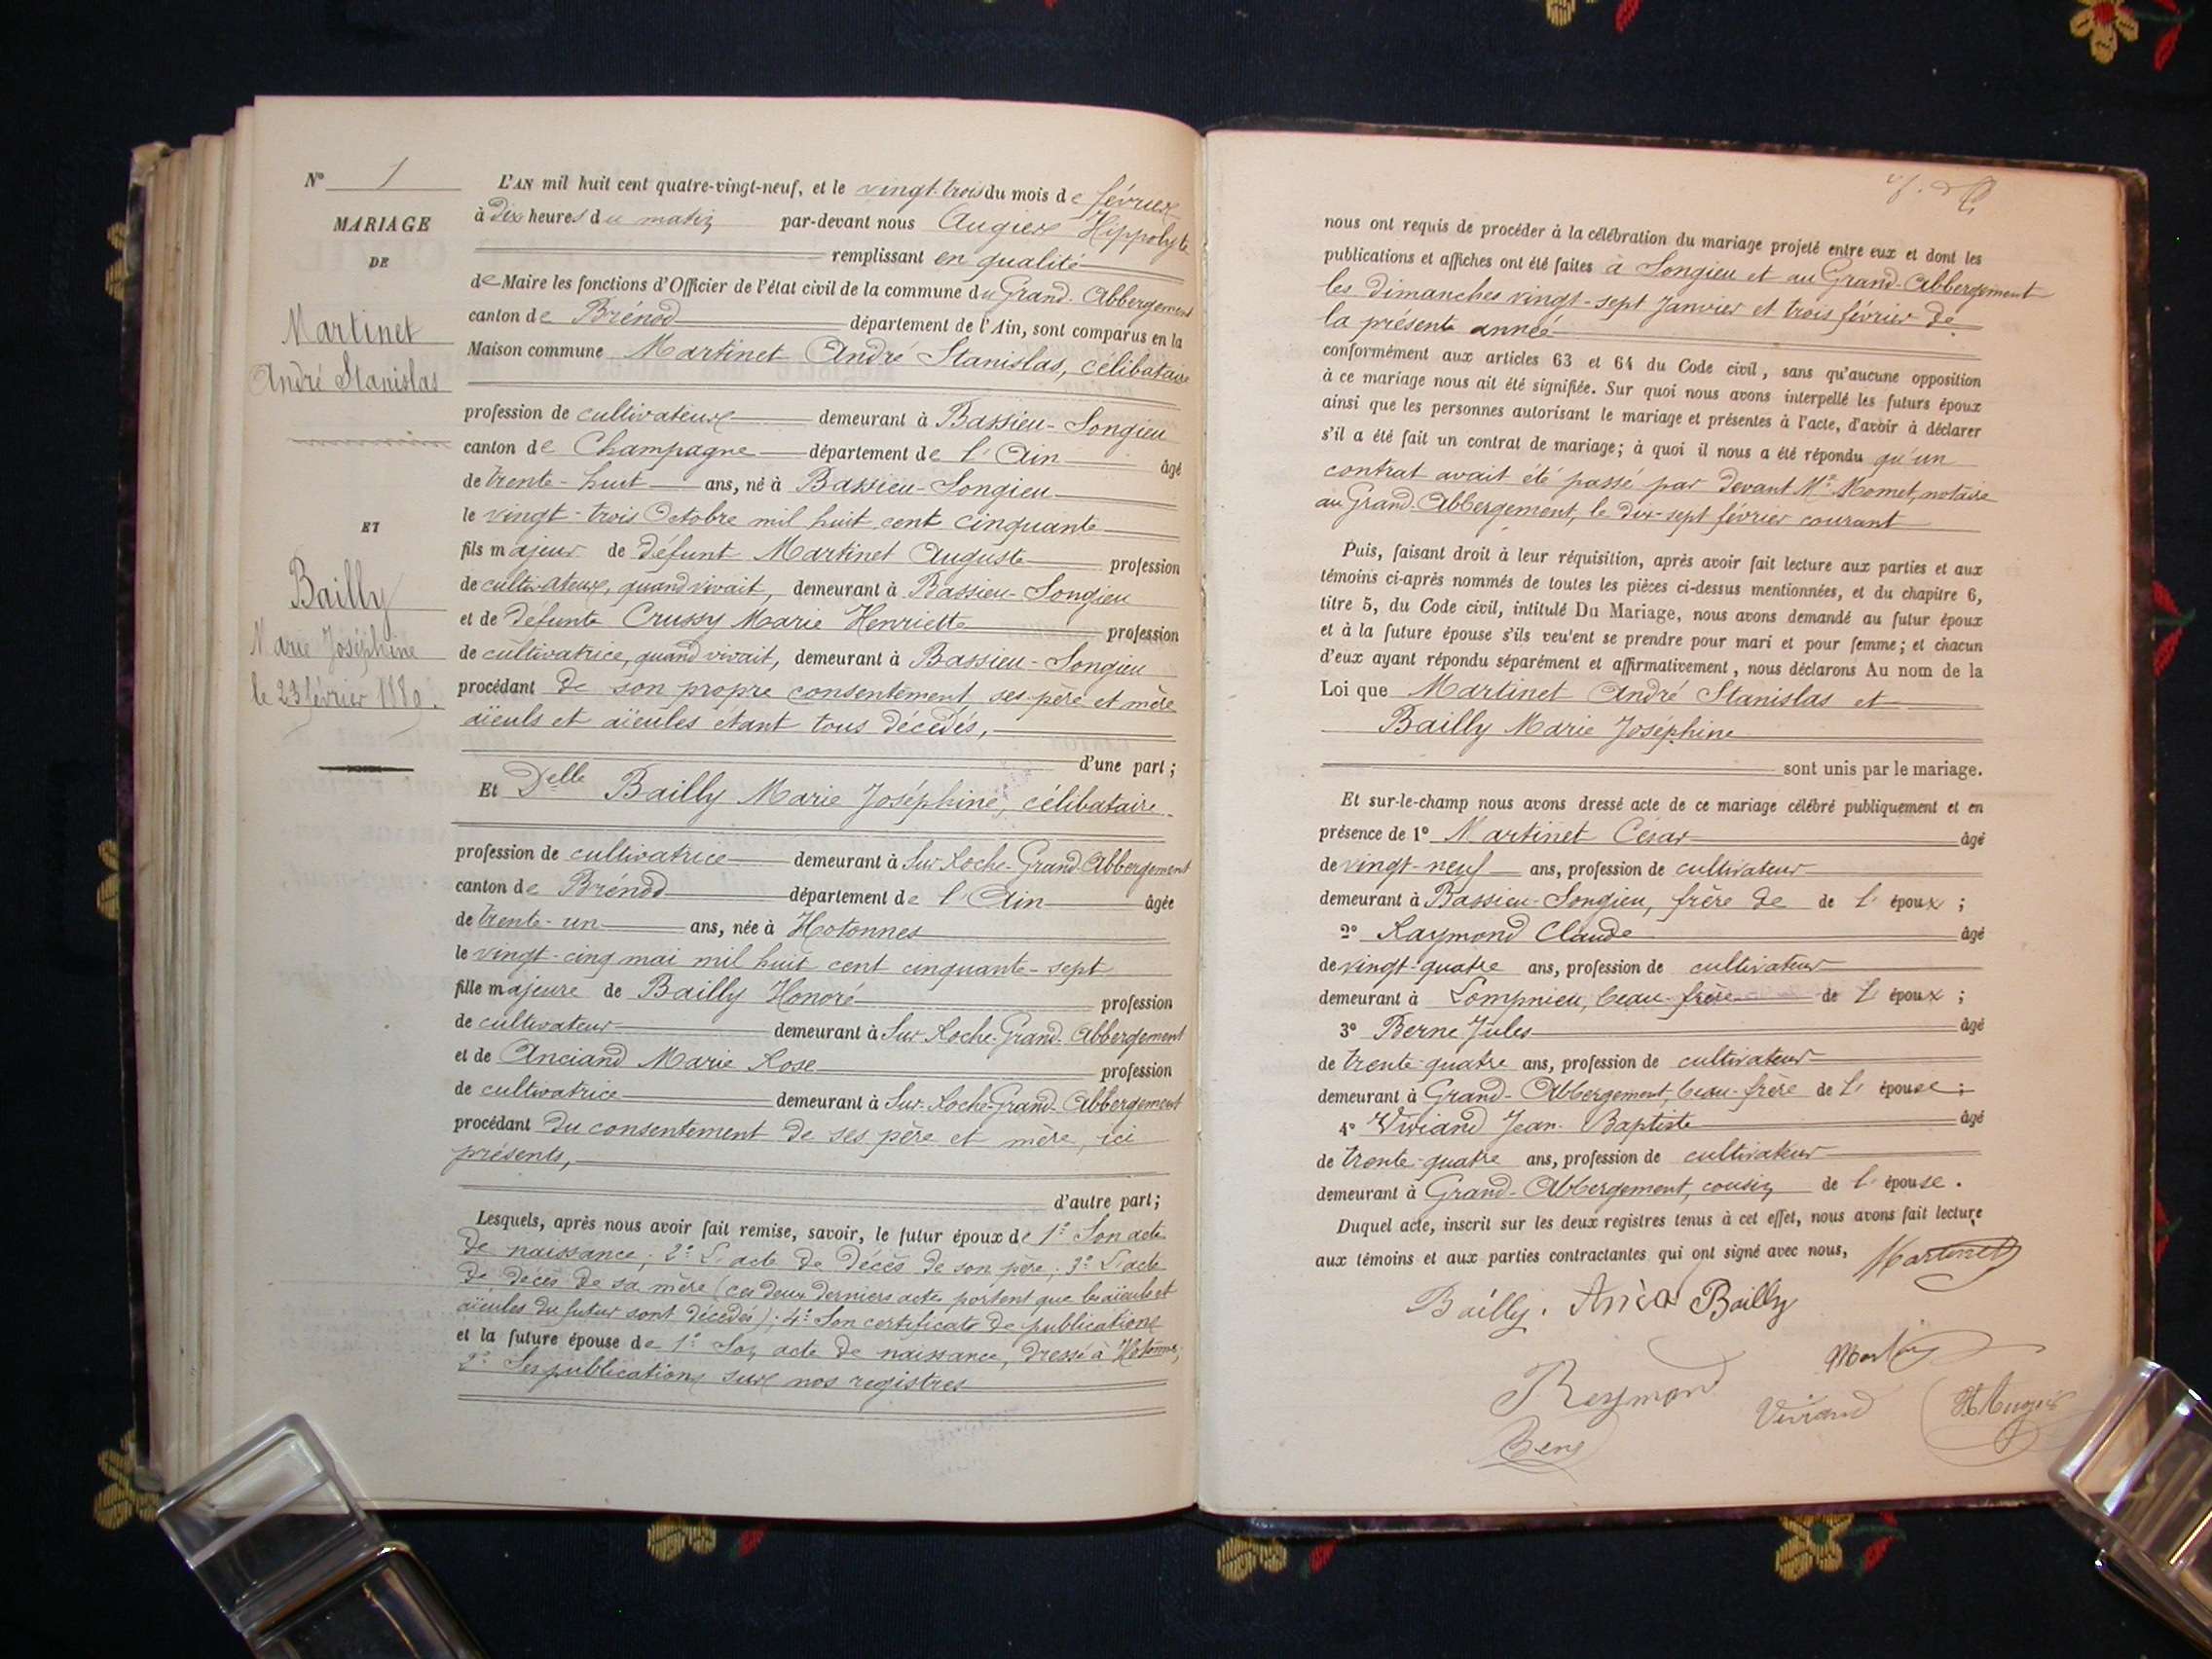 N° 1
MARIAGE
DE
Martinet
André Stanislas
ET
Bailly
Marie Joséphine
le 23 février 1889.
L'AN mil huit cent quatre-vingt-neuf, et le vingt-trois du mois de février
à dix heures du matin par-devant nous Augier Hippolyte
remplissant en qualité
de Maire les fonctions d'Officier de l'état civil de la commune du Grand-Abbergement
canton de Brénod département de l'Ain, sont comparus en la
Maison commune Martinet André Stanislas, célibataire
profession de cultivateur demeurant à Bassieu-Songieu
canton de Champagne département de l'Ain âgé
de trente-huit ans, né à Bassieu-Songieu
le vingt-trois Octobre mil huit cent cinquante
fils majeur de défunt Martinet Auguste profession
de cultivateur, quand vivait, demeurant à Bassieu-Songieu
et de défunte Crussy Marie Henriette profession
de cultivatrice, quand vivait, demeurant à Bassieu-Songieu
procédant de son propre consentement, ses père et mère
aïeuls et aïeules étant tous décédés,
d'une part;
Et Delle Bailly Marie Joséphine, célibataire
profession de cultivatrice demeurant à Sur-Roche-Grand-Abbergement
canton de Brénod département de l'Ain âgée
de trente-un ans, née à Hotonnes
le vingt-cinq mai mil huit cent cinquante-sept
fille majeure de Bailly Honoré profession
de cultivateur demeurant à Sur-Roche-Grand-Abbergement
et de Anciand Marie Rose profession
de cultivatrice demeurant à Sur-Roche-Grand-Abbergement
procédant du consentement de ses père et mère, ici
présents,
d'autre part;
Lesquels, après nous avoir fait remise, savoir, le futur époux de 1° Son acte
de naissance; 2° L'acte de décès de son père; 3° L'acte
de décès de sa mère (ces deux derniers actes portent que les aïeuls et
aïeules du futur sont décédés); 4° Son certificat de publications
et la future épouse de 1° Son acte de naissance, dressé à Hotonnes;
2° Les publications sur nos registres
nous ont requis de procéder à la célébration du mariage projeté entre eux et dont les
publications et affiches ont été faites à Songieu et au Grand-Abbergement
les dimanches vingt-sept Janvier et trois février de
la présente année
conformément aux articles 63 et 64 du Code civil, sans qu'aucune opposition
à ce mariage nous ait été signifiée. Sur quoi nous avons interpellé les futurs époux
ainsi que les personnes autorisant le mariage et présentes à l'acte, d'avoir à déclarer
s'il a été fait un contrat de mariage; à quoi il nous a été répondu qu'un
contrat avait été passé par devant Me Momet, notaire
au Grand-Abbergement, le dix-sept février courant
Puis, faisant droit à leur réquisition, après avoir fait lecture aux parties et aux
témoins ci-après nommés de toutes les pièces ci-dessus mentionnées, et du chapitre 6,
titre 5, du Code civil, intitulé Du Mariage, nous avons demandé au futur époux
et à la future épouse s'ils veulent se prendre pour mari et pour femme; et chacun
d'eux ayant répondu séparément et affirmativement, nous déclarons Au nom de la
Loi que Martinet André Stanislas et
Bailly Marie Joséphine
sont unis par le mariage.
Et sur-le-champ nous avons dressé acte de ce mariage célébré publiquement et en
présence de 1° Martinet César âgé
de vingt-neuf ans, profession de cultivateur
demeurant à Bassieu-Songieu, frère de de l'époux;
2° Raymond Claude âgé
de vingt-quatre ans, profession de cultivateur
demeurant à Lompnieu, beau-frère de l'époux;
3° Berne Jules âgé
de trente-quatre ans, profession de cultivateur
demeurant à Grand-Abbergement, beau-frère de l'épouse;
4° Viviand Jean-Baptiste âgé
de trente-quatre ans, profession de cultivateur
demeurant à Grand-Abbergement, cousin de l'épouse.
Duquel acte, inscrit sur les deux registres tenus à cet effet, nous avons fait lecture
aux témoins et aux parties contractantes qui ont signé avec nous, Martinet
Bailly. Bailly
Reymond
Viviand H Augier